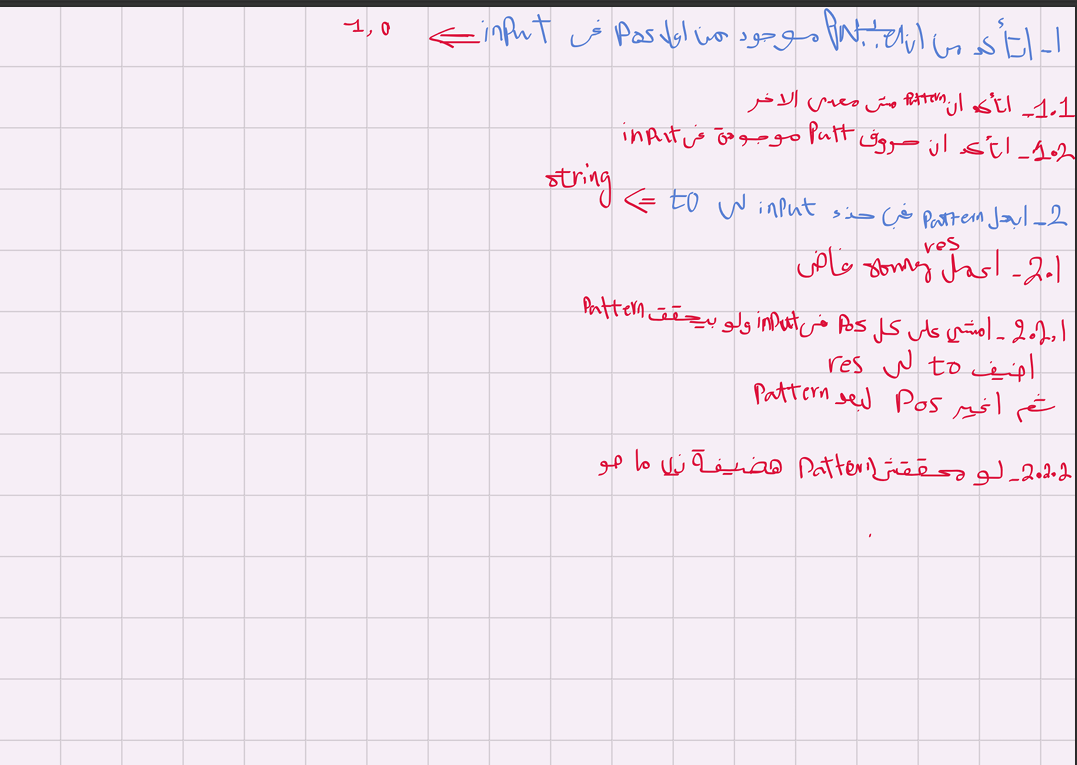 1- اتأكد من ان Pattern موجود من اول Pos في input ⇐ 1,0
1.1- اتأكد ان Pattern مش معدي الاخر
1.2- اتأكد ان حروف Patt موجودة في input
2- ابدل Pattern في input ل to ⇐ string
2.1- اعمل string فاضي res
2.2.1- امشي على كل Pos في input ولو بيحقق Pattern
اضيف to ل res
ثم اغير Pos لبعد Pattern
2.2.2- لو محققتش Pattern هضيفة زي ما هو